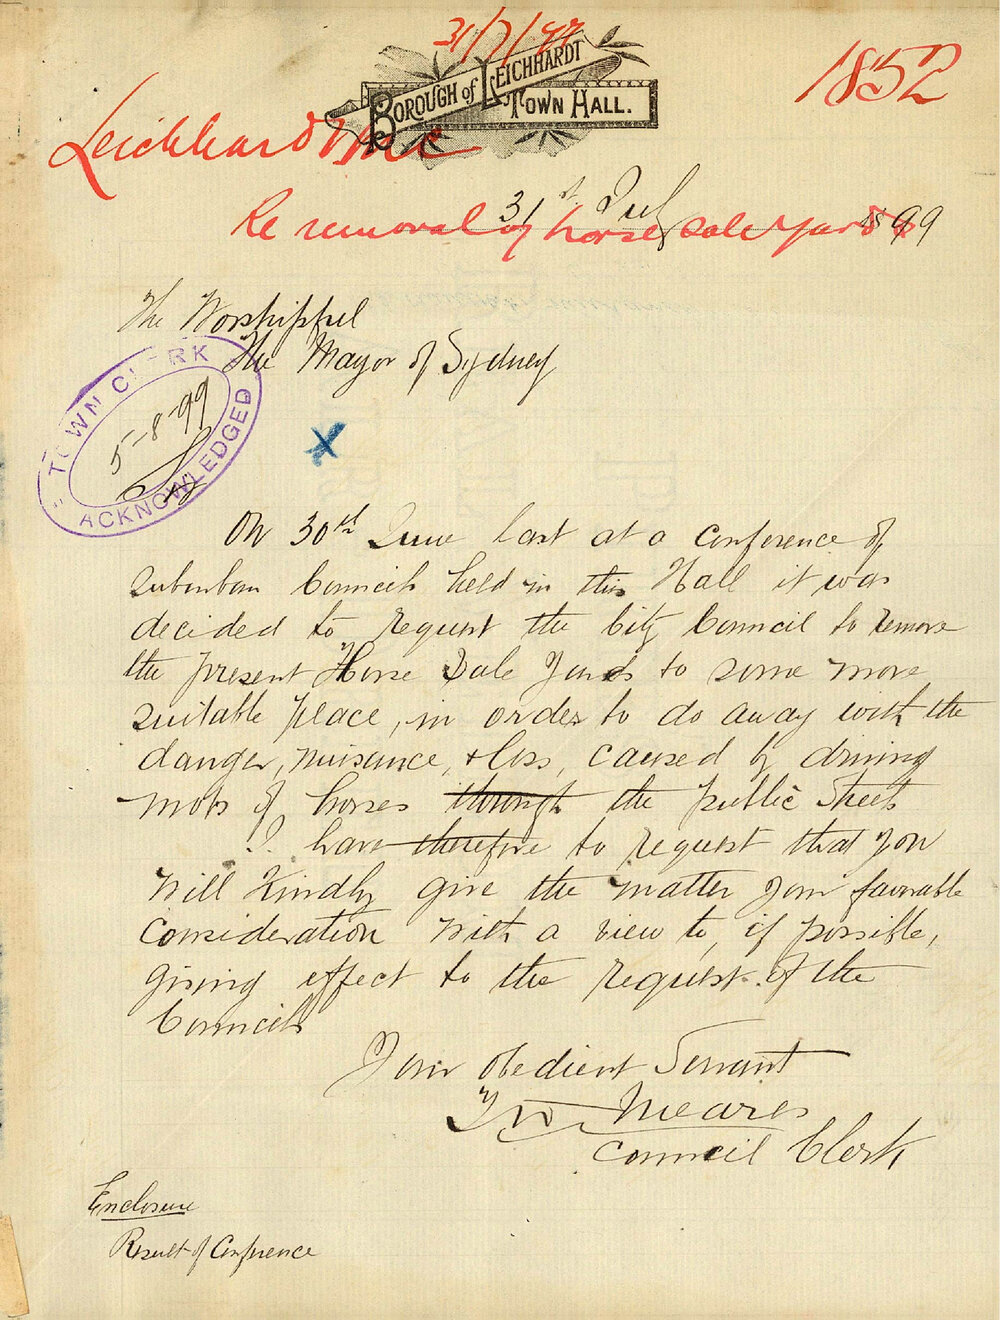 31/7/99
1852
BOROUGH of LEICHHARDT
TOWN HALL.
Leichhardt
Re removal of horse sale yards
31st July 1899
The Worshipful
The Mayor of Sydney
TOWN CLERK
5-8-99
ACKNOWLEDGED
X
On 30th June last at a conference of
Suburban Councils held in this Hall it was
decided to request the City Council to remove
the present Horse Sale Yards to some more
suitable place, in order to do away with the
danger, nuisance, & loss, caused by driving
mobs of horses through the public Streets
I have therefore to request that you
will kindly give the matter your favorable
consideration with a view to, if possible,
giving effect to the request of the
Councils
Your obedient Servant
Meares
Council Clerk
Enclosure
Result of Conference